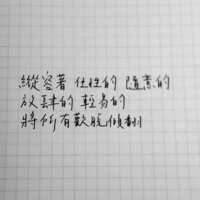 縱容著 任性的 隨意的
放肆的 輕易的
將所有歡脫傾翻